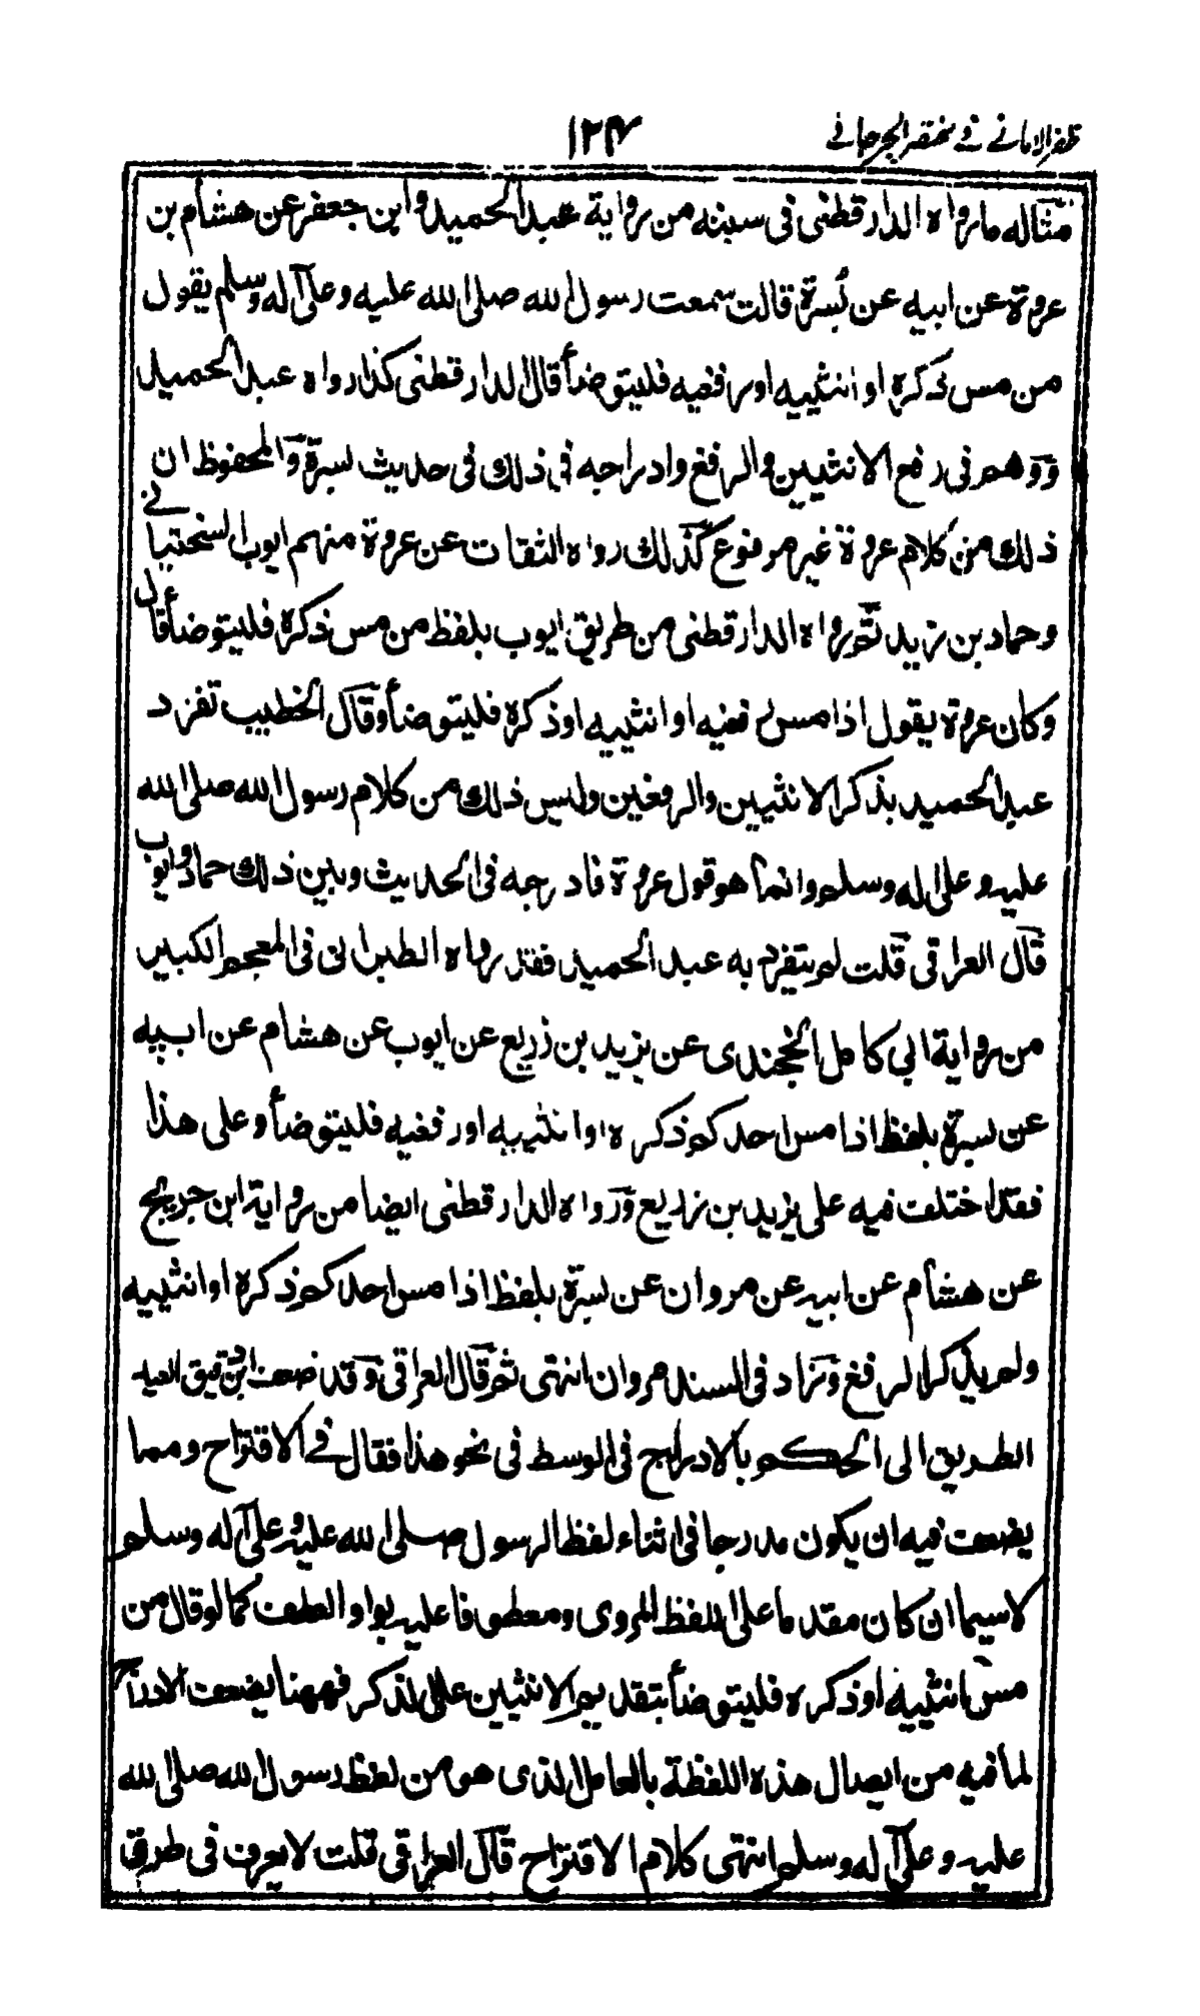 ظفر الامانے فے مختصر الجرجانے
۱۲۴
مثاله ما رواه الدارقطنى فى سننه من رواية عبد الحميد و ابن جعفر عن هشام بن
عروة عن ابيه عن بسرة قالت سمعت رسول الله صلى الله عليه وعلى آله وسلم يقول
من مس ذكره او انثييه او رفغيه فليتوضأ قال الدارقطنى كذا رواه عبد الحميد
ووهم فى رفع الانثيين والرفغ وادراجه فى ذلك فى حديث بسرة والمحفوظ ان
ذلك من كلام عروة غير مرفوع كذلك رواه الثقات عن عروة منهم ايوب السختيانے
وحماد بن زيد ثم رواه الدارقطنى من طريق ايوب بلفظ من مس ذكره فليتوضأ قال
وكان عروة يقول اذا مس رفغيه او انثييه او ذكره فليتوضأ وقال الخطيب تفرد
عبد الحميد بذكر الانثيين والرفغين وليس ذلك من كلام رسول الله صلى الله
عليه وعلى اله وسلم وانما هو قول عروة فادرجه فى الحديث وبين ذلك حماد وايوب
قال العراقى قلت لم يتفرد به عبد الحميد فقد رواه الطبرانى فى المعجم الكبير
من رواية ابى كامل الجحدرى عن يزيد بن زريع عن ايوب عن هشام عن ابيه
عن بسرة بلفظ اذا مس احدكم ذكره او انثييه او رفغيه فليتوضأ وعلى هذا
فقد اختلف فيه على يزيد بن زريع ورواه الدارقطنى ايضا من رواية ابن جريج
عن هشام عن ابيه عن مروان عن بسرة بلفظ اذا مس احدكم ذكره او انثييه
ولم يذكر الرفغ وزاد فى السند مروان انتهى ثم قال العراقى وقد ضعف ابن دقيق العيد
الطريق الى الحكم بالادراج فى الوسط فى نحو هذا فقال فے الاقتراح ومما
يضعف فيه ان يكون مدرجا فى اثناء لفظ الرسول صلى الله عليه وعلى آله وسلم
لا سيما ان كان مقدما على اللفظ المروى ومعطوفا عليه بواو العطف كما لو قال من
مس انثييه او ذكره فليتوضأ بتقديم الانثيين على الذكر فههنا يضعف الادراج
لما فيه من ايصال هذه اللفظة بالعامل الذى هو من لفظ رسول الله صلى الله
عليه وعلى آله وسلم انتهى كلام الاقتراح قال العراقى قلت لا يعرف فى طرق